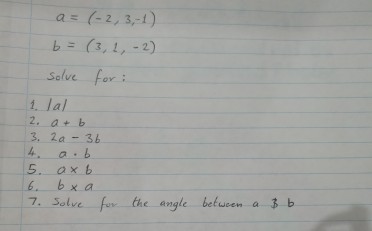 a = (-2, 3, -1)
b = (3, 1, -2)
Solve for :
1. |a|
2. a + b
3. 2a - 3b
4. a · b
5. a x b
6. b x a
7. Solve for the angle between a & b